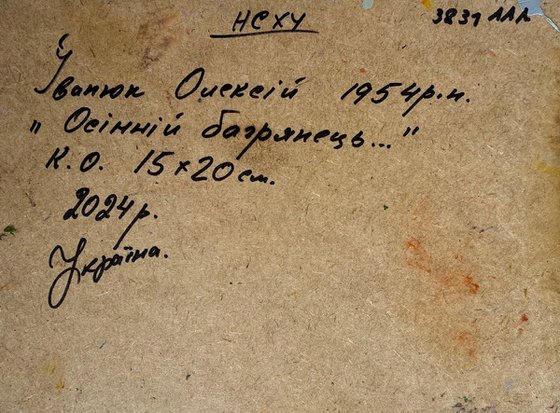 НСХУ
3831 ААА
Іванюк Олексій 1954р.н.
„Осінній багрянець..."
К.О. 15×20см.
2024р.
Україна.